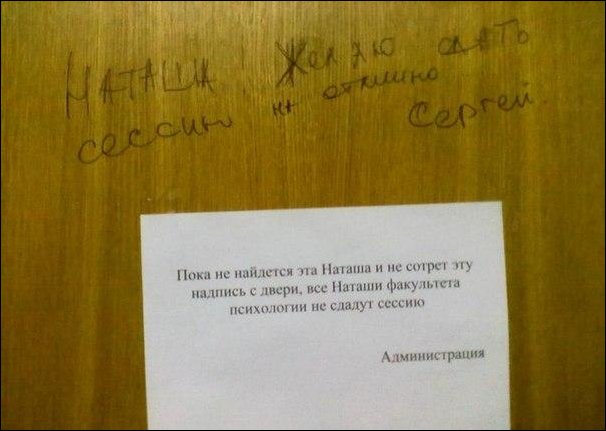 НАТАША! Желаю сдать
сессию на отлично
Сергей.
Пока не найдется эта Наташа и не сотрет эту
надпись с двери, все Наташи факультета
психологии не сдадут сессию
Администрация